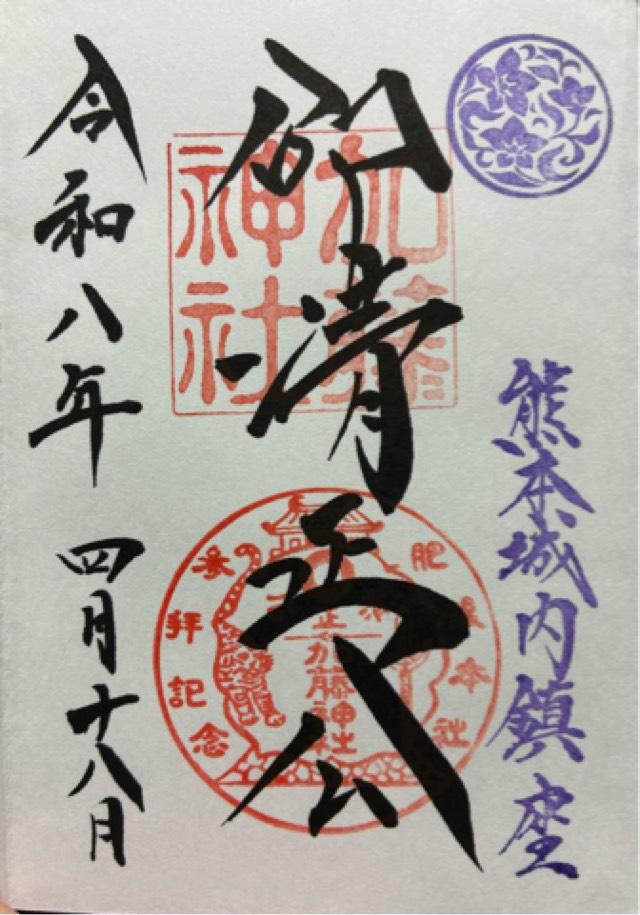 熊本城内鎮座
仰清正公
加藤
神社
肥後本社
参拝記念
加藤神社
令和八年 四月十八日